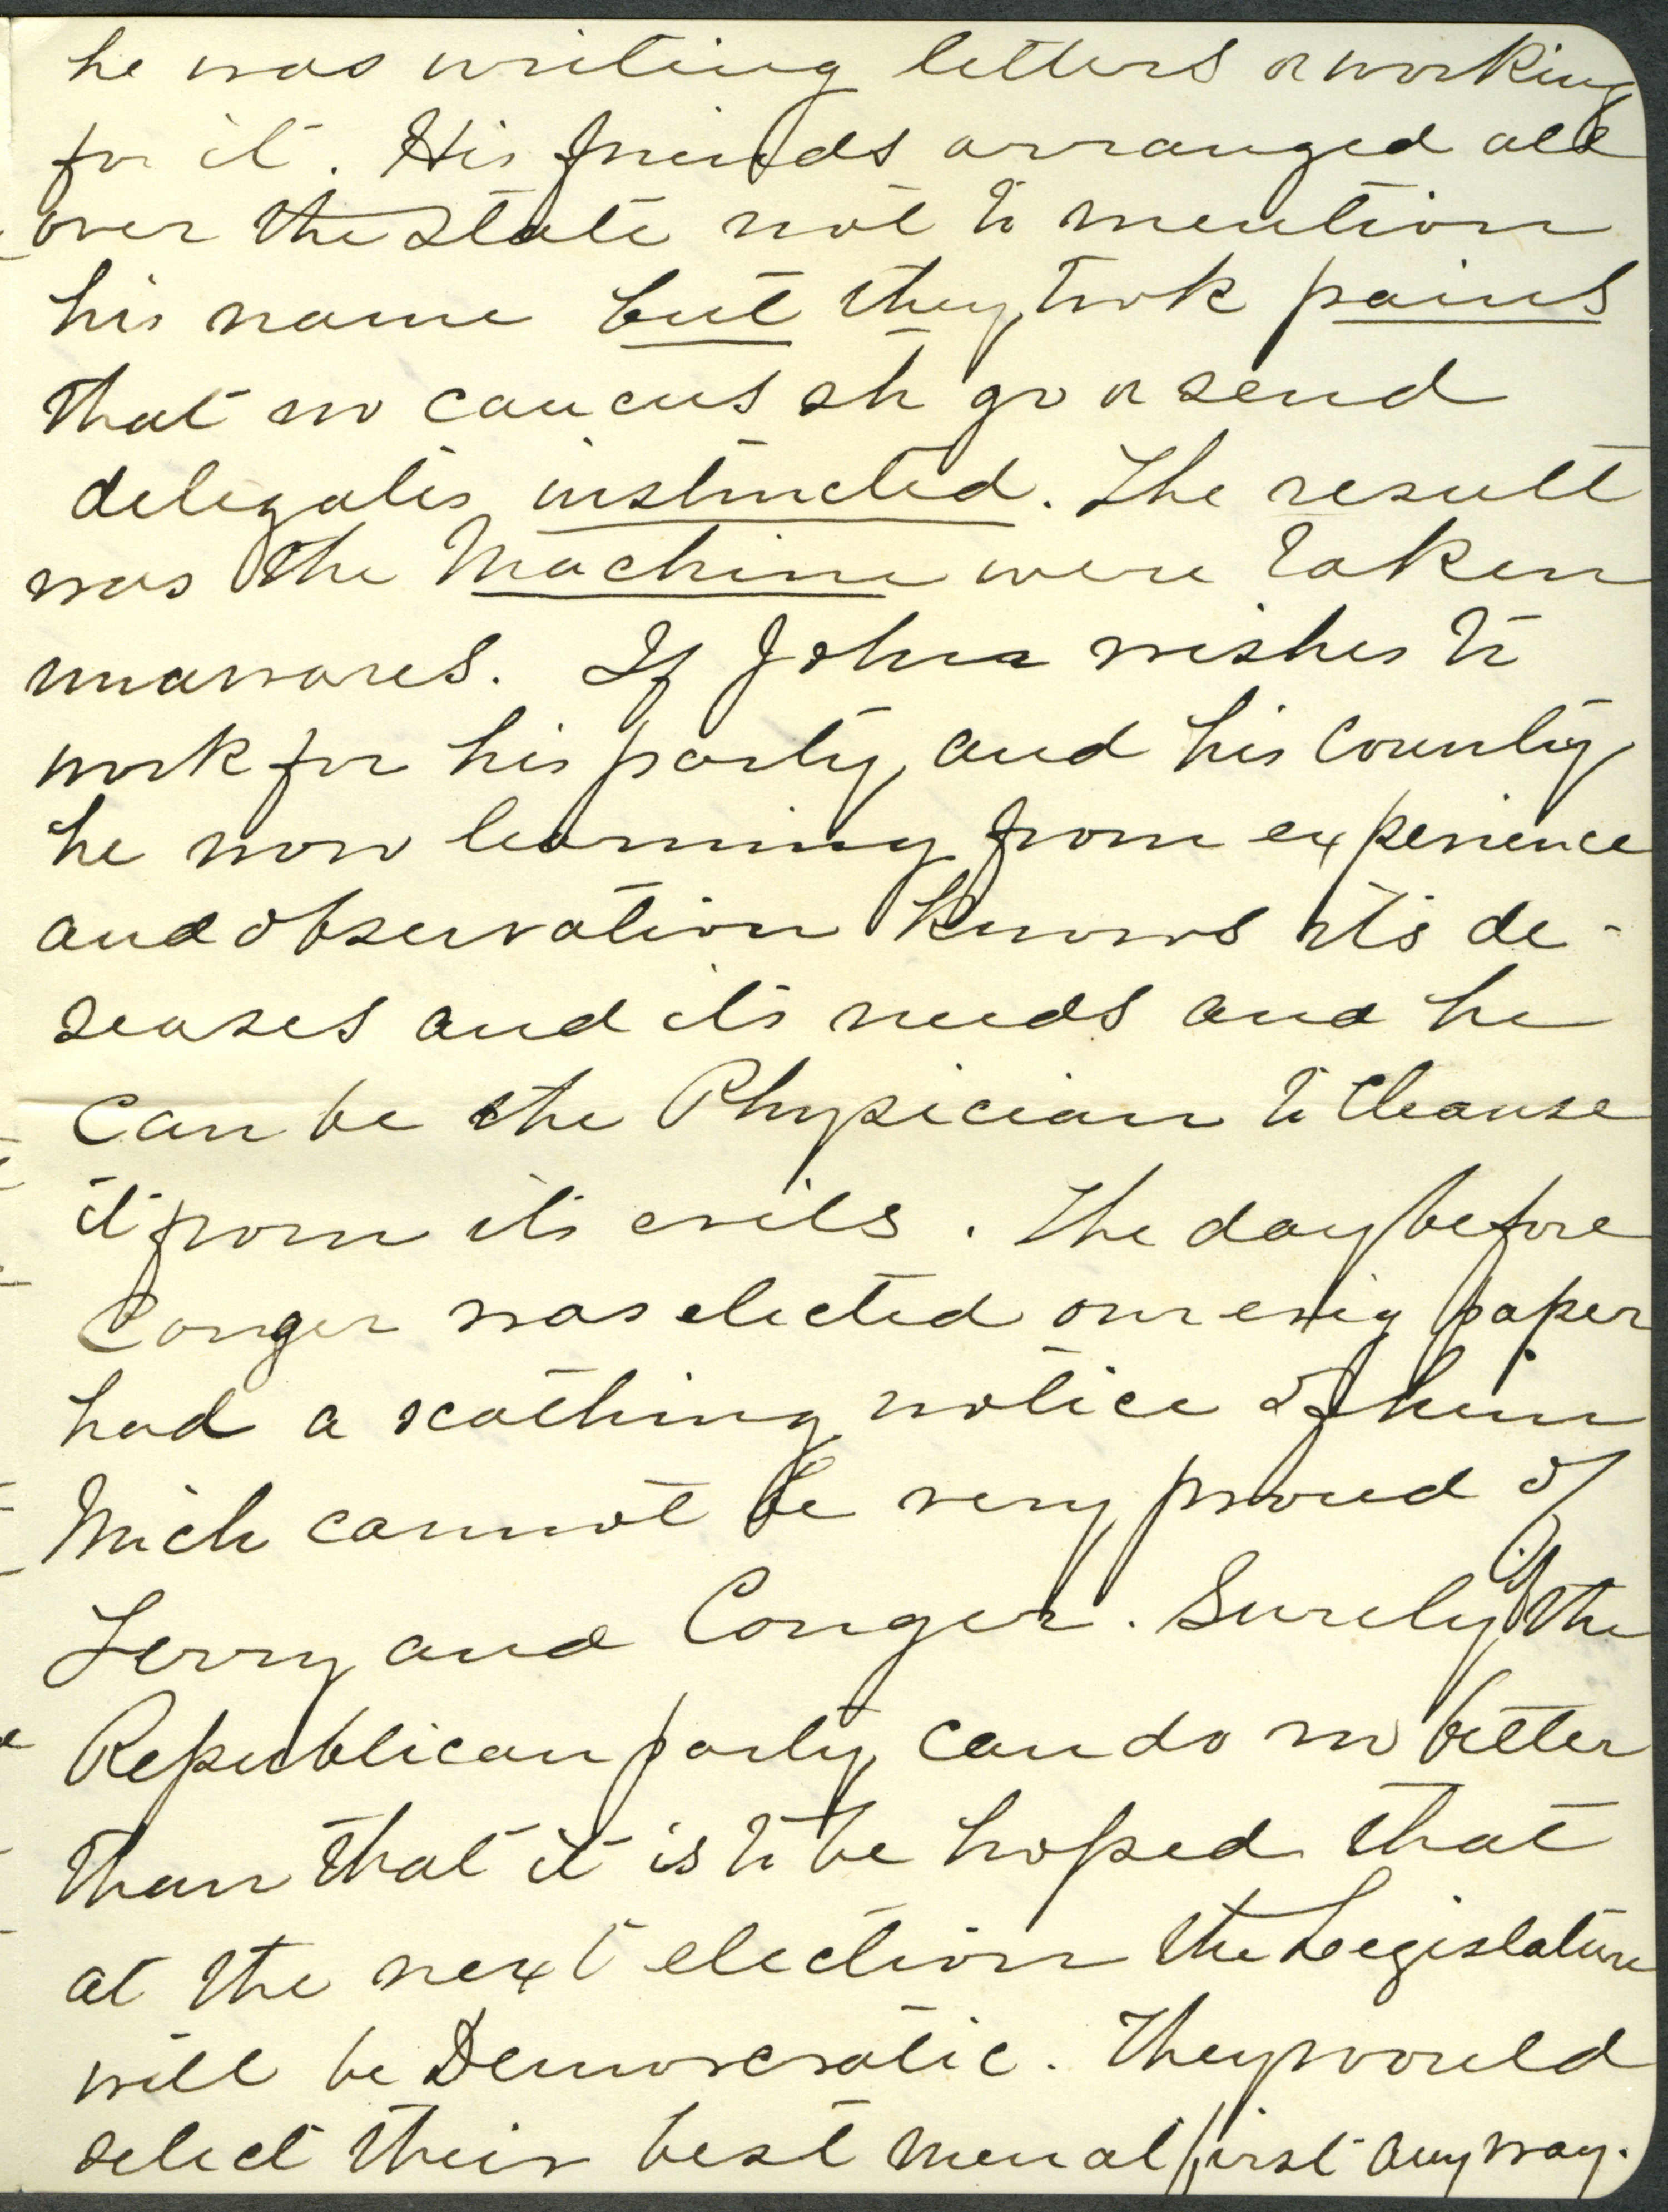 he was writing letters or working
for it. His friends arranged all
over the State not to mention
his name but they took pains
that no caucus sh go or send
delegates instructed. The result
was the Machine were taken
unawares. If John wishes to
work for his party, and his County,
he now learning from experience
and observation knows its de-
seases and its needs and he
can be the Physician to Cleanse
it from its evils. The day before
Conger was elected our evig paper
had a scathing notice of him
Mich cannot be very proud of
Ferry and Conger. Surely if the
Republican party can do no better
than that it is to be hoped that
at the next election the Legislature
will be Democratic. They would
select their best men at first anyway.